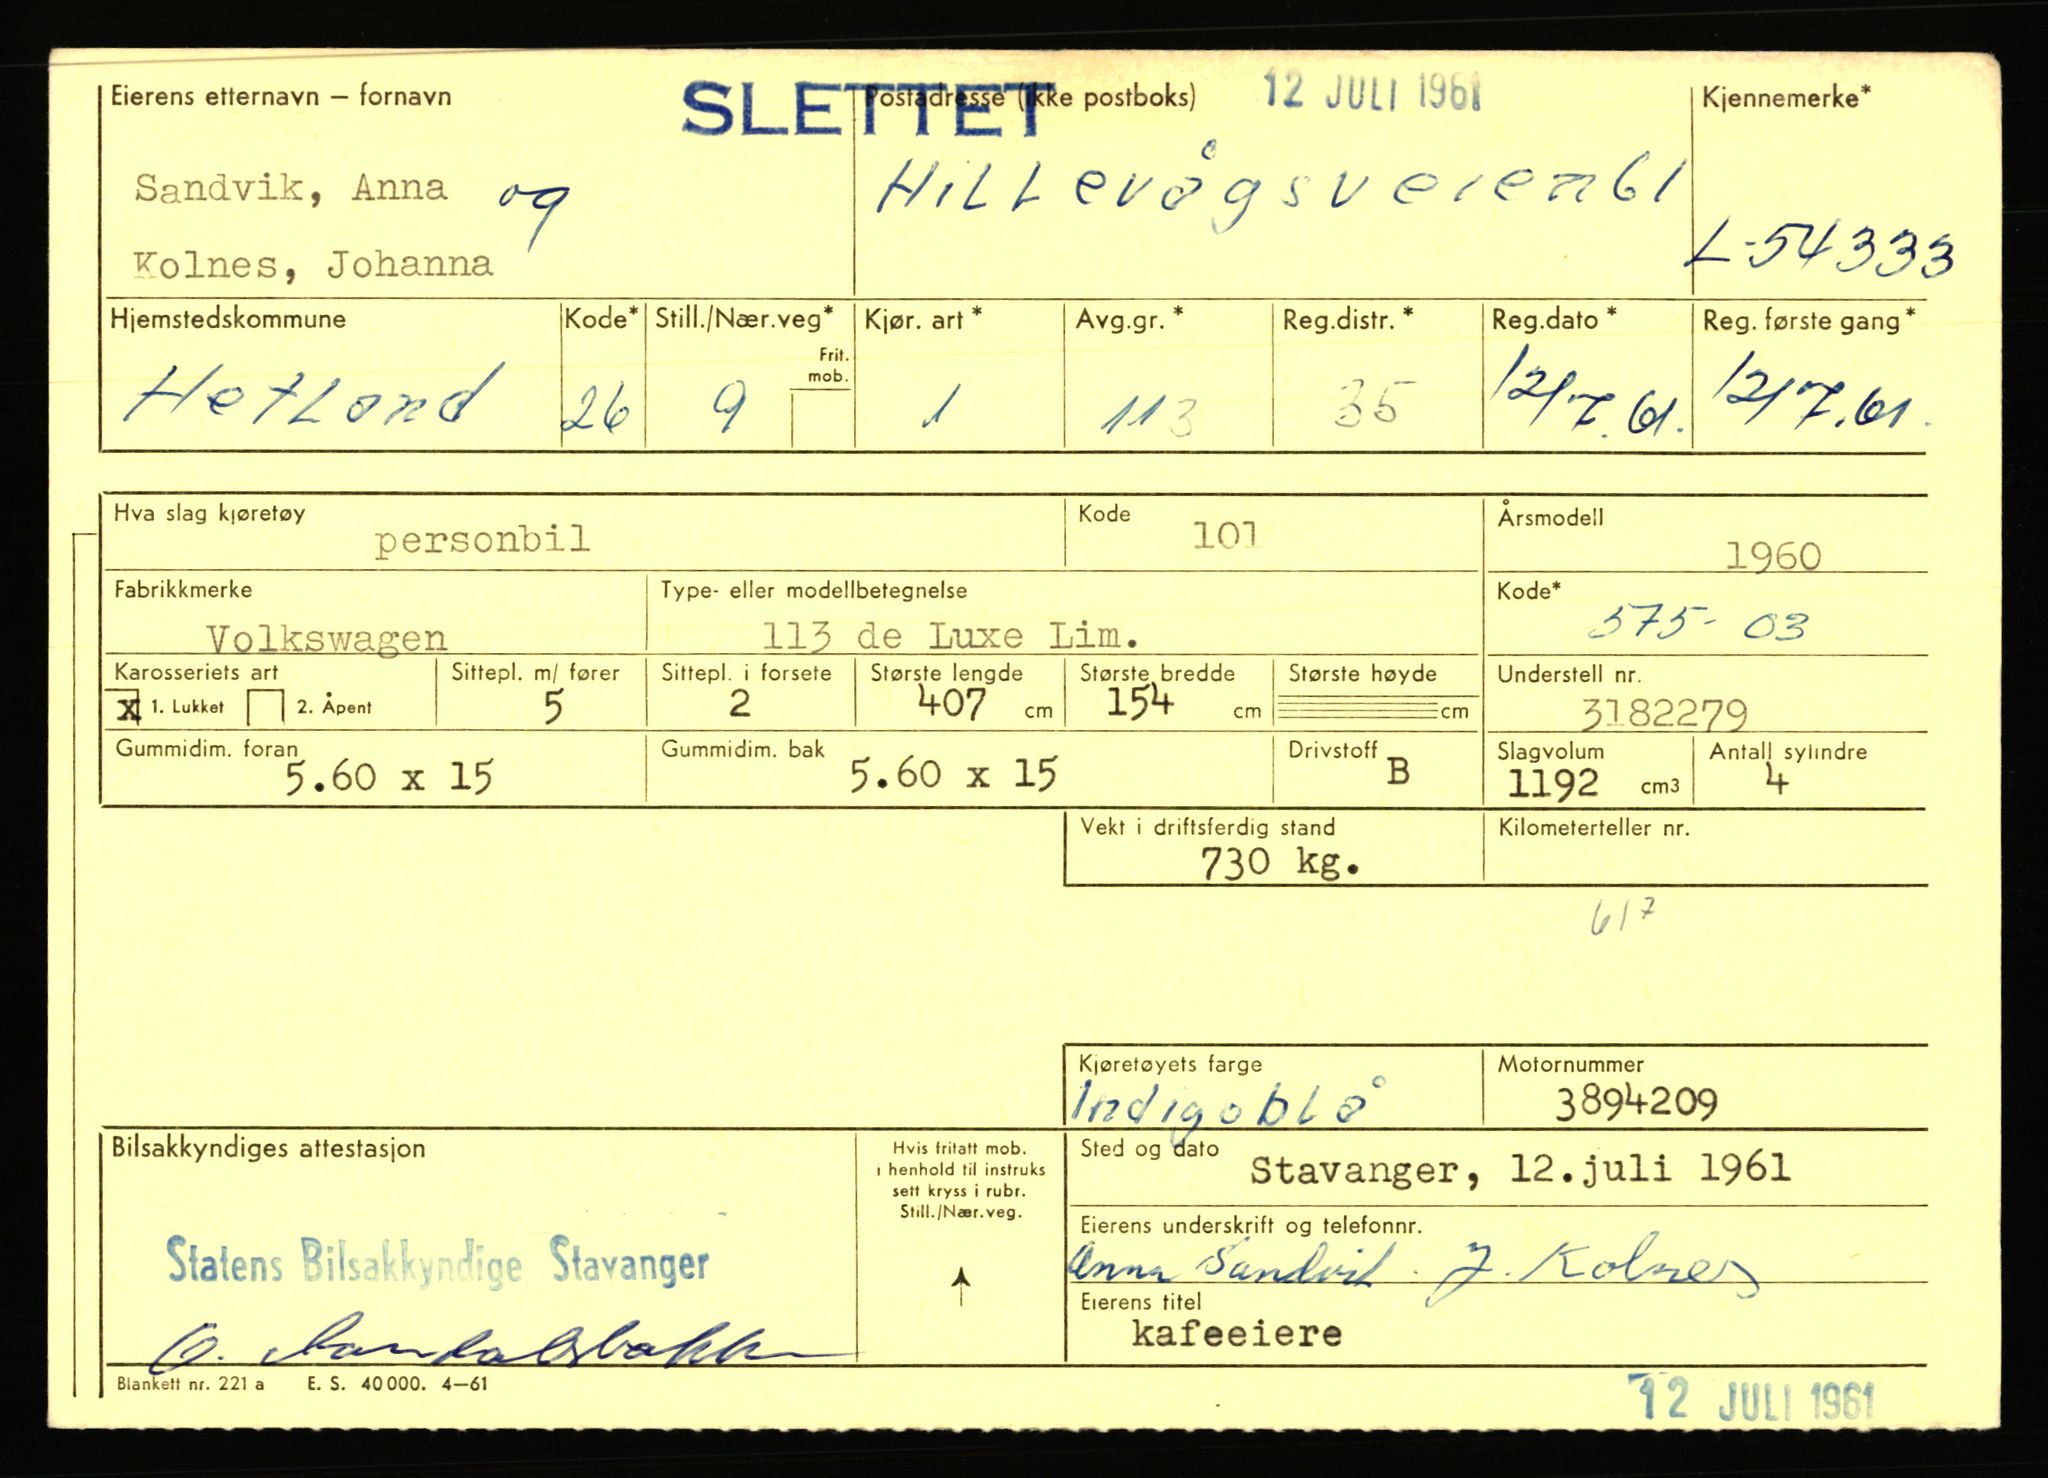 SLETTET
12 JULI 1961
Eierens etternavn – fornavn
Postadresse (ikke postboks)
Kjennemerke*
Sandvik, Anna og
Kolnes, Johanna
Hillevågsveien 61
L-54333
Hjemstedskommune
Kode*
Still./Nær.veg*
Frit. mob.
Kjør. art *
Avg.gr. *
Reg.distr. *
Reg.dato *
Reg. første gang *
Hetland
26
9
1
113
35
12/7.61.
12/7.61.
Hva slag kjøretøy
personbil
Kode
101
Årsmodell
1960
Fabrikkmerke
Volkswagen
Type- eller modellbetegnelse
113 de Luxe Lim.
Kode*
575- 03
Karosseriets art
x 1. Lukket 2. Åpent
Sittepl. m/ fører
5
Sittepl. i forsete
2
Største lengde
407 cm
Største bredde
154 cm
Største høyde
cm
Understell nr.
3182279
Gummidim. foran
5.60 x 15
Gummidim. bak
5.60 x 15
Drivstoff
B
Slagvolum
1192 cm3
Antall sylindre
4
Vekt i driftsferdig stand
730 kg.
Kilometerteller nr.
617
Kjøretøyets farge
Indigoblå
Motornummer
3894209
Bilsakkyndiges attestasjon
Statens Bilsakkyndige Stavanger
Hvis fritatt mob.
i henhold til instruks
sett kryss i rubr.
Still./Nær.veg.
Sted og dato
Stavanger, 12.juli 1961
Eierens underskrift og telefonnr.
Anna Sandvik. J. Kolnes
Eierens titel
kafeeiere
Blankett nr. 221 a E. S. 40 000. 4–61
12 JULI 1961